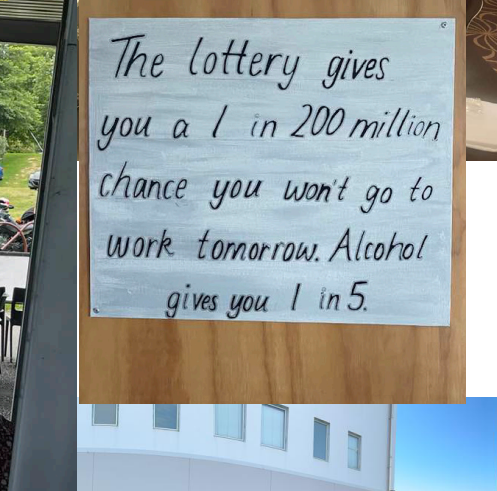 The lottery gives
you a 1 in 200 million
chance you won't go to
work tomorrow. Alcohol
gives you 1 in 5.